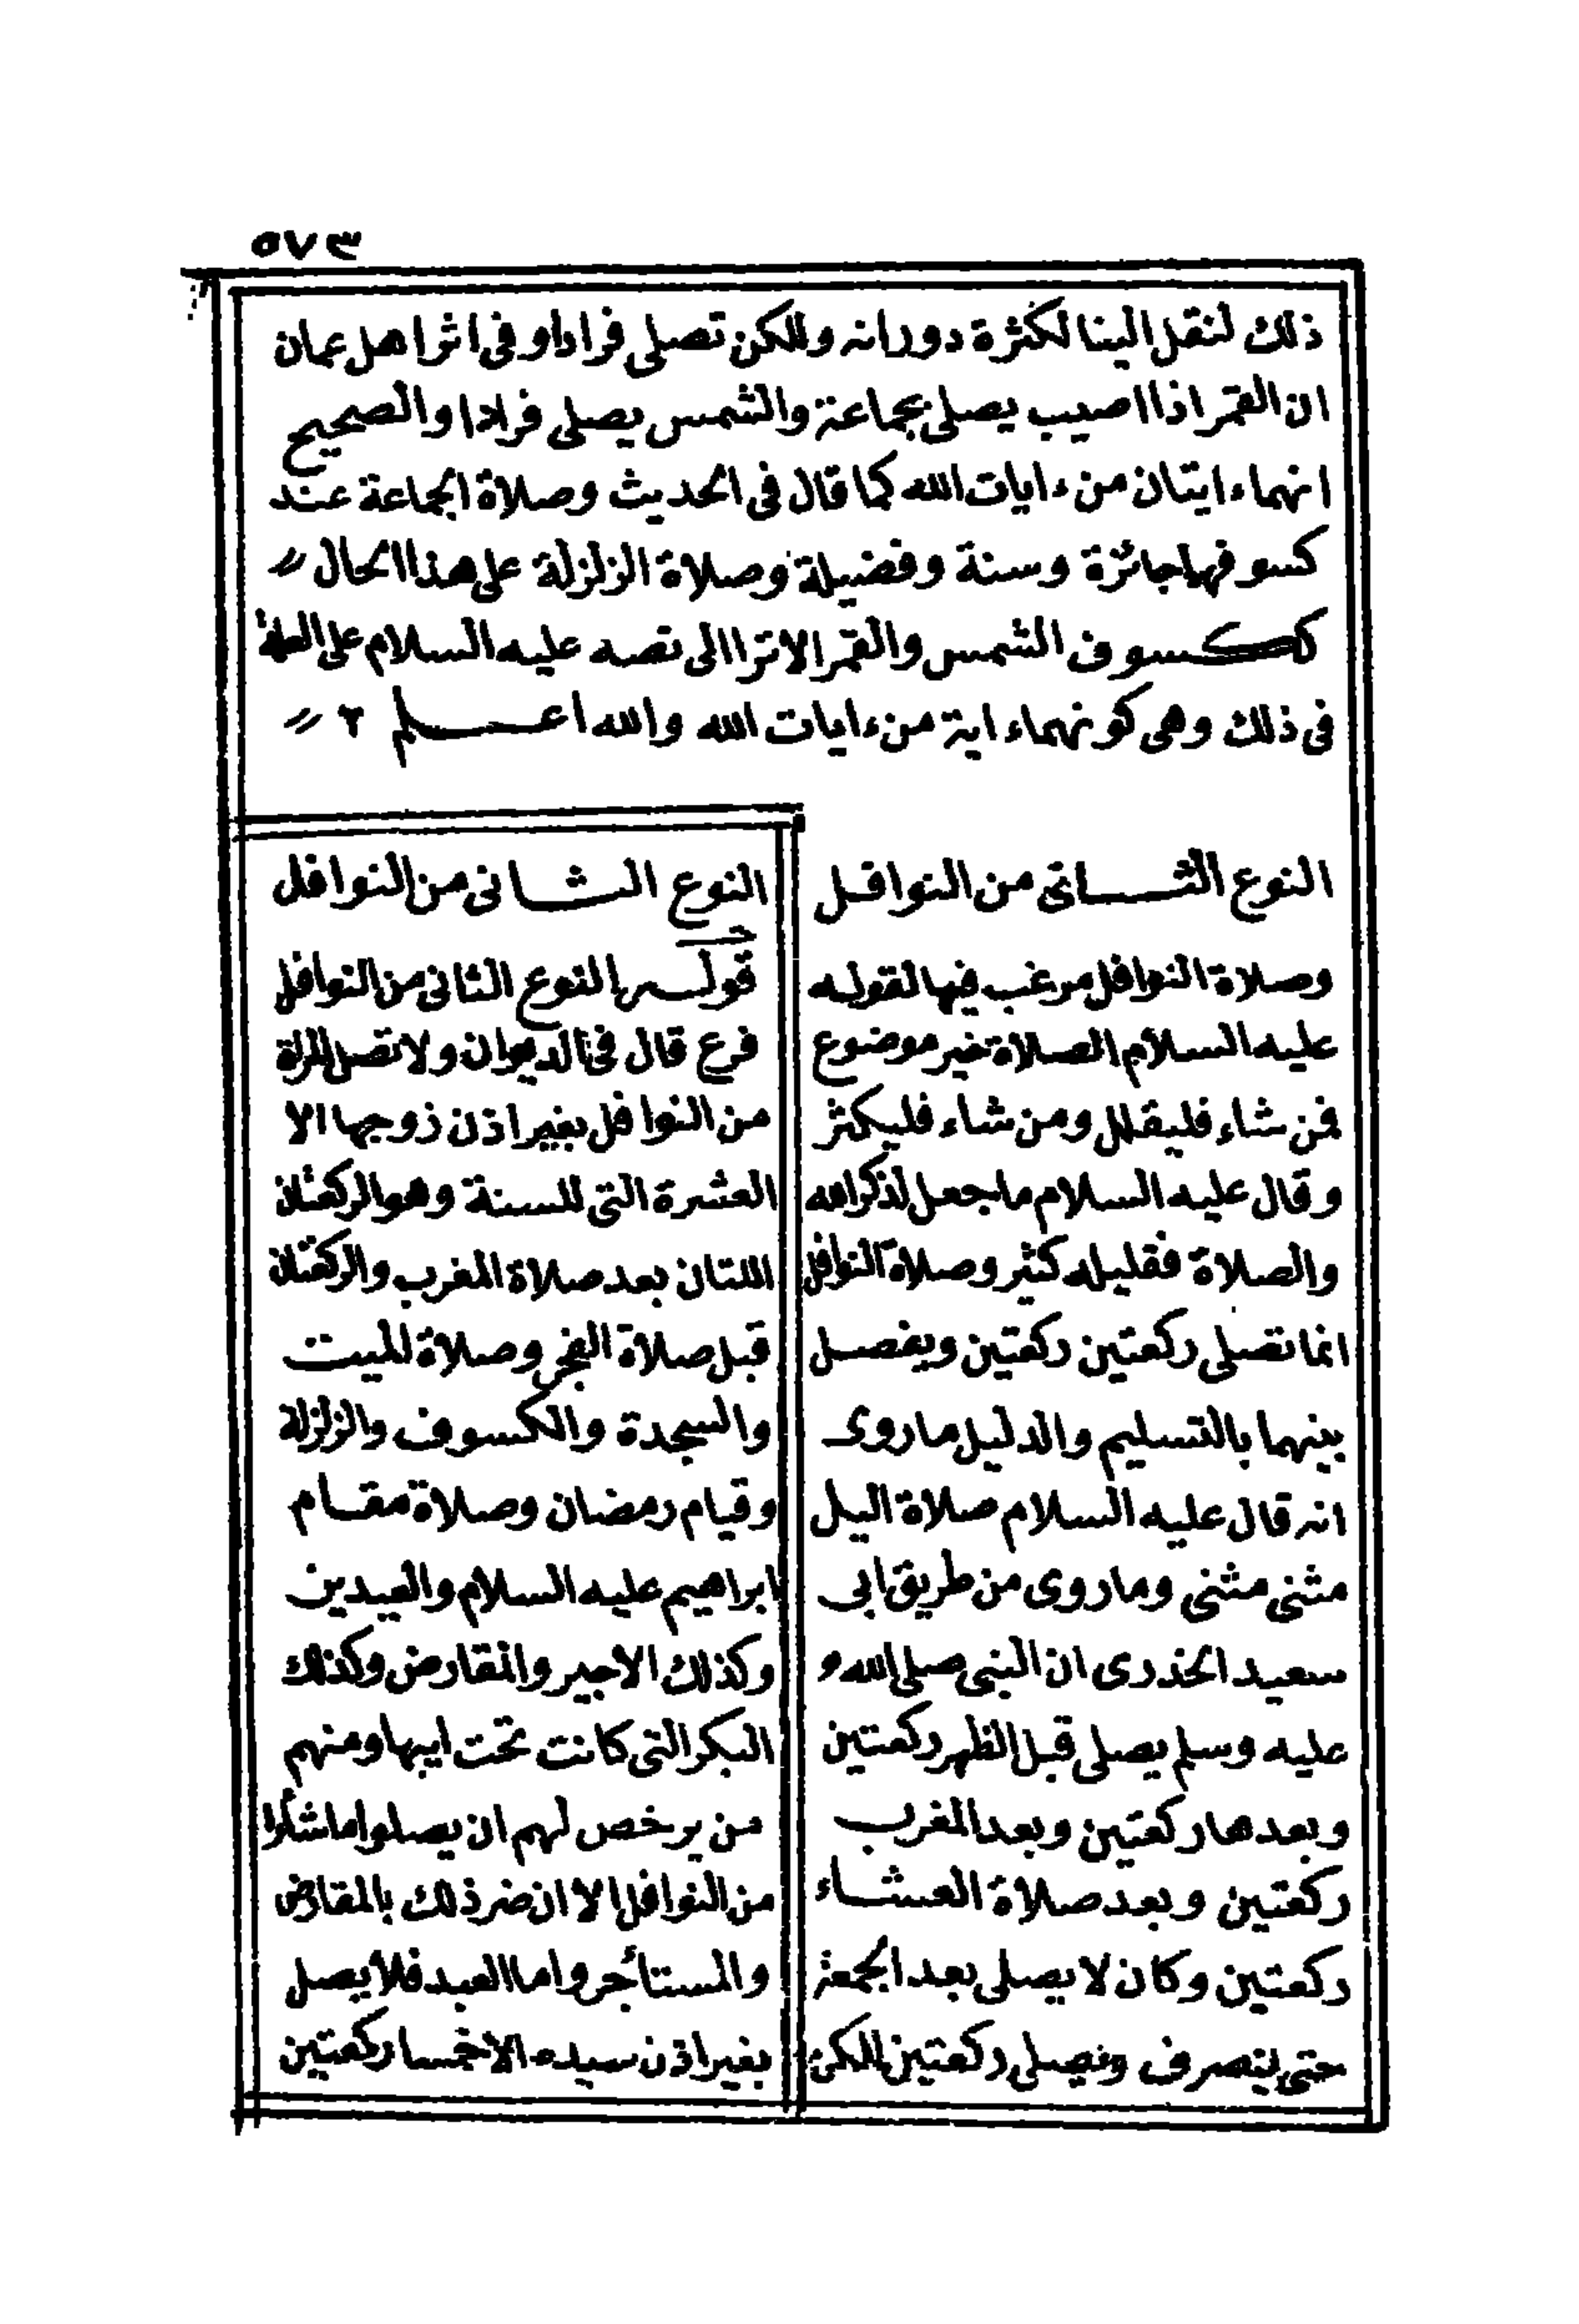 ٥٧٣
ذلك لنقل الينا لكثرة دورانه ولكن تصلى فرادا وفى اثر اهل عمان
ان القمر اذا اصيب يصلى بجماعة والشمس يصلى فرادا والصحيح
انهماء ايتان من ءايات الله كما قال فى الحديث وصلاة الجماعة عند
كسوفهما جائزة وسنة وفضيلة وصلاة الزلزلة على هذا الحال
ككسوف الشمس والقمر الا ترا الى نصه عليه السلام على العلة
فى ذلك وهى كونهماء اية من ءايات الله والله اعلم
النوع الثانى من النوافل
وصلاة النوافل مرغب فيها لقوله
عليه السلام الصلاة خير موضوع
فمن شاء فليقلل ومن شاء فليكثر
وقال عليه السلام ما جعل لذكر الله
والصلاة فقليله كثير وصلاة النوافل
انما تصلى ركعتين ركعتين ويفصل
بينهما بالتسليم والدليل ما روى
انه قال عليه السلام صلاة اليل
مثنى مثنى وما روى من طريق ابى
سعيد الخدرى ان النبى صلى الله و
عليه وسلم يصلى قبل الظهر ركعتين
وبعدها ركعتين وبعد المغرب
ركعتين وبعد صلاة العشاء
ركعتين وكان لا يصلى بعد الجمعة
حتى ينصرف ويصلى ركعتين لكن
النوع الثانى من النوافل
قوله النوع الثانى من النوافل
فرع قال فى الديوان ولا تصل المراة
من النوافل بغير اذن زوجها الا
العشرة التى للسنة وهو الركعتان
اللتان بعد صلاة المغرب والركعتان
قبل صلاة الفجر وصلاة للميت
والسجدة والكسوف والزلزلة
وقيام رمضان وصلاة مقام
ابراهيم عليه السلام والعيدين
وكذلك الاجير والمقارض وكذلك
البكر التى كانت تحت ابيها ومنهم
من يرخص لهم ان يصلوا ما شاءوا
من النوافل الا ان ضر ذلك بالمقارض
والمستأجر واما العبد فلا يصل
بغير اذن سيده الا خمسا ركعتين